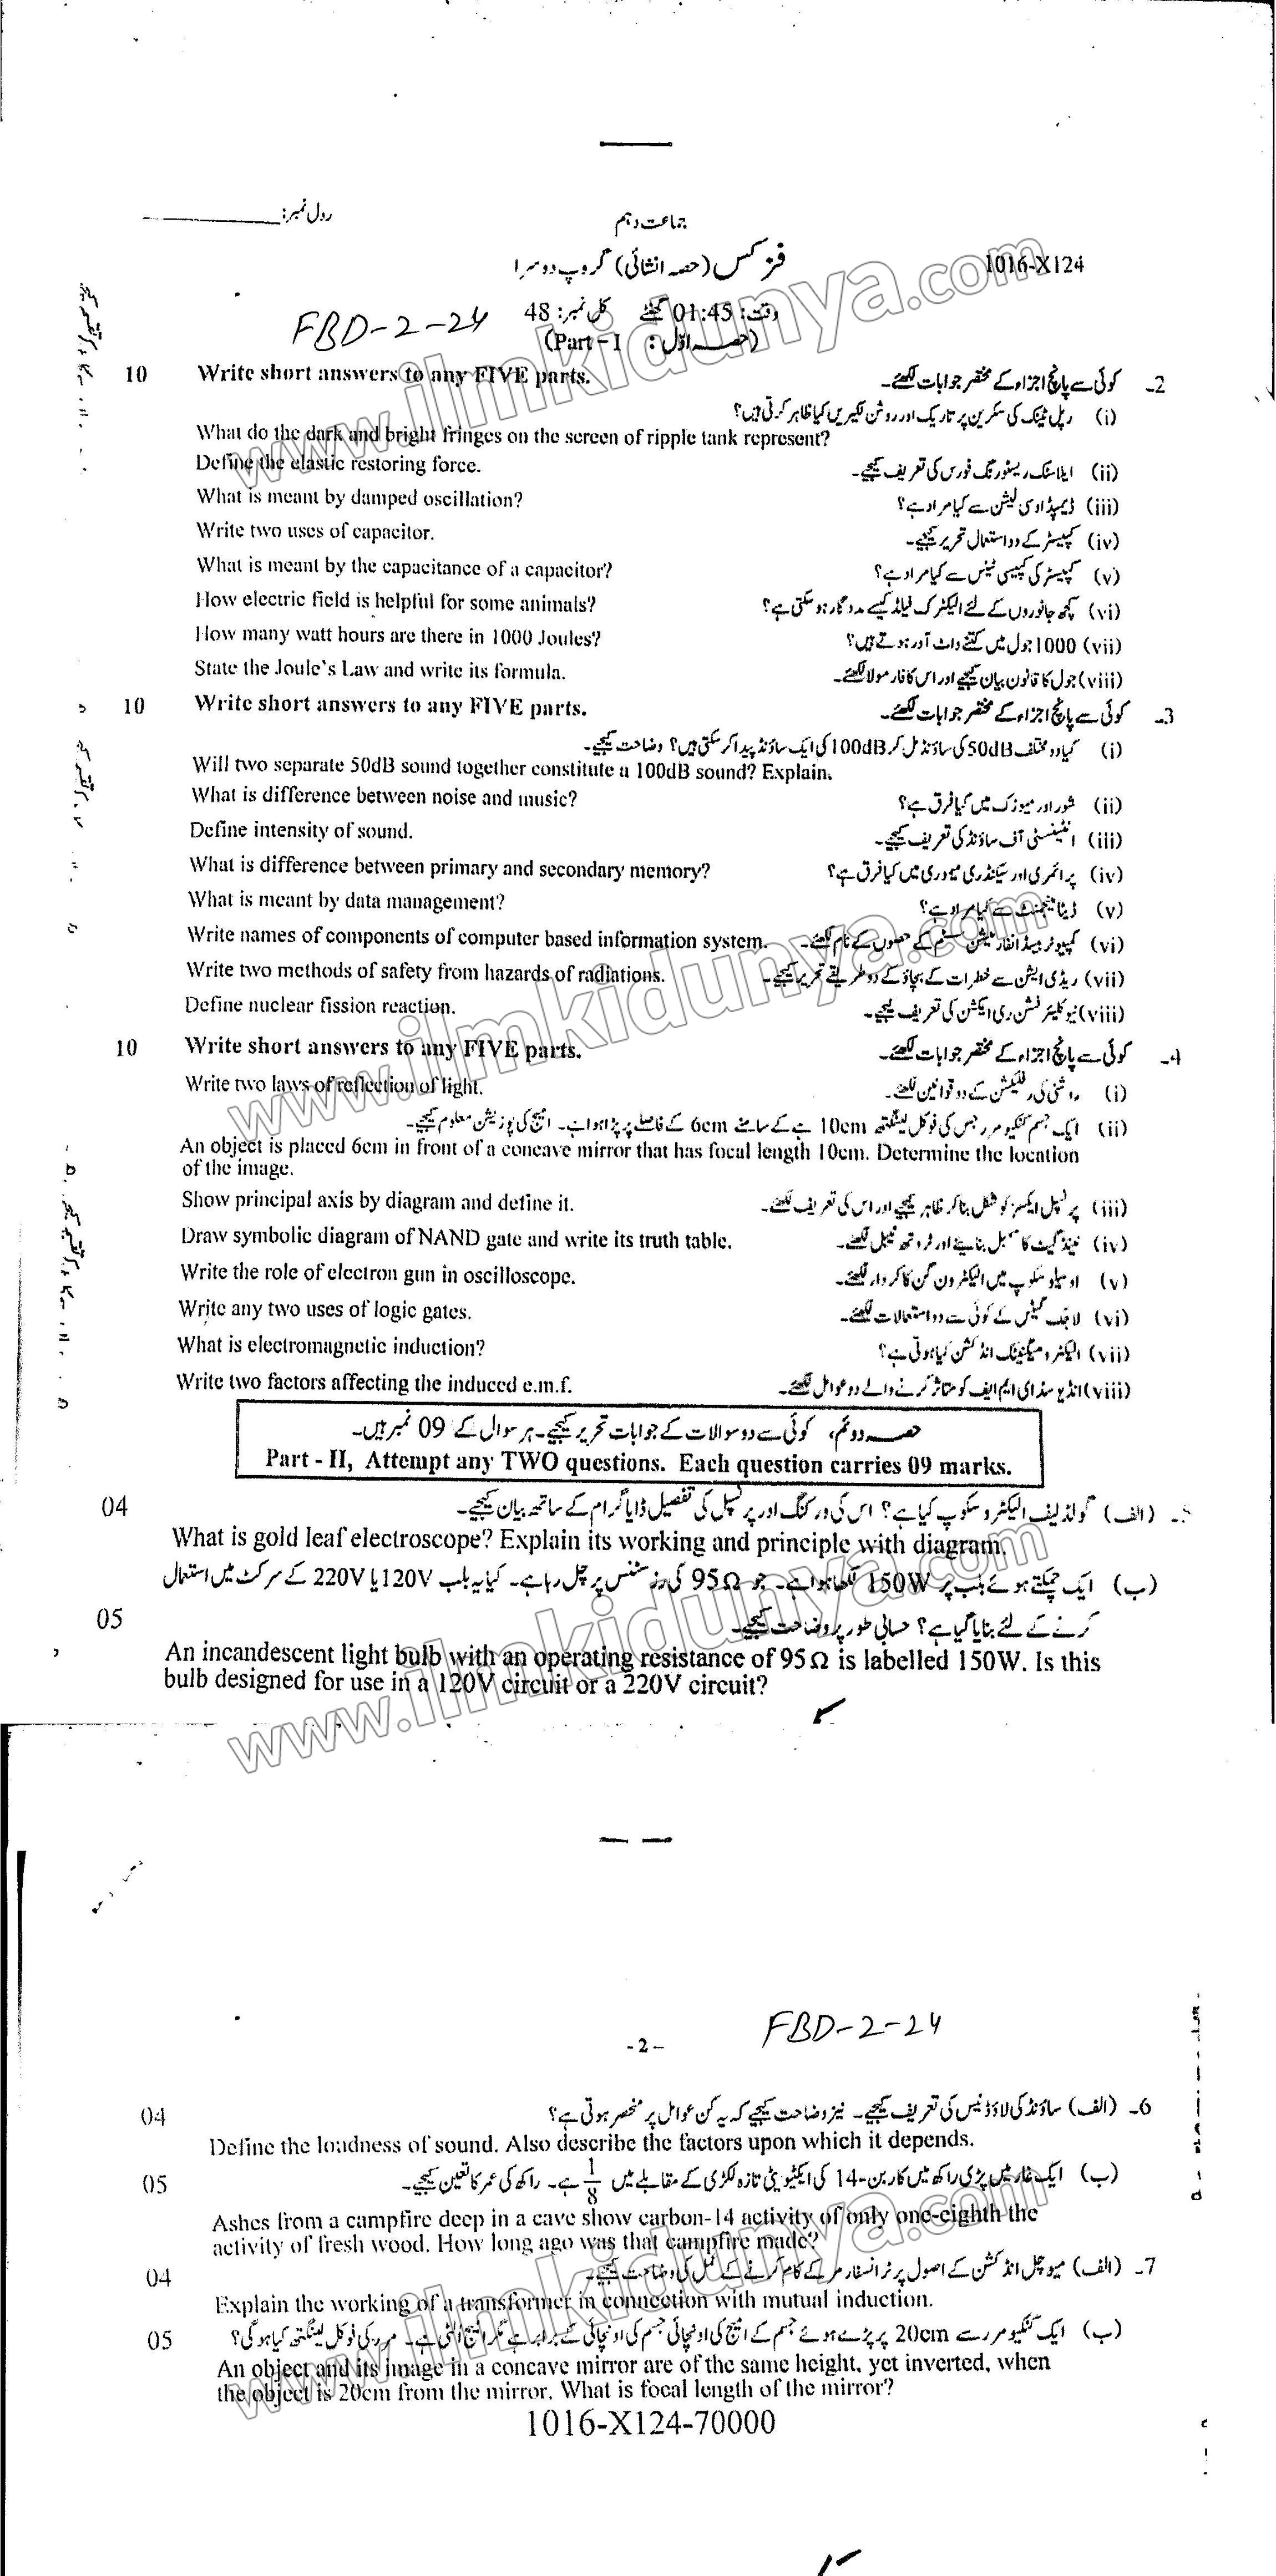 رول نمبر: ________
جماعت دہم
1016-X124
فزکس (حصہ انشائی) گروپ دوسرا
وقت: 01:45 گھنٹے کل نمبر: 48
FBD-2-24
(حصہ اوّل : Part – I)
2- کوئی سے پانچ اجزاء کے مختصر جوابات لکھئے۔
Write short answers to any FIVE parts. 10
(i) رپل ٹینک کی سکرین پر تاریک اور روشن لکیریں کیا ظاہر کرتی ہیں؟
What do the dark and bright fringes on the screen of ripple tank represent?
(ii) ایلاسٹک ریسٹورنگ فورس کی تعریف کیجیے۔
Define the elastic restoring force.
(iii) ڈیمپڈ اوسی لیشن سے کیا مراد ہے؟
What is meant by damped oscillation?
(iv) کپیسٹر کے دو استعمال تحریر کیجیے۔
Write two uses of capacitor.
(v) کپیسٹر کی کپیسی ٹینس سے کیا مراد ہے؟
What is meant by the capacitance of a capacitor?
(vi) کچھ جانوروں کے لئے الیکٹرک فیلڈ کیسے مددگار ہو سکتی ہے؟
How electric field is helpful for some animals?
(vii) 1000 جول میں کتنے واٹ آور ہوتے ہیں؟
How many watt hours are there in 1000 Joules?
(viii) جول کا قانون بیان کیجیے اور اس کا فارمولا لکھئے۔
State the Joule's Law and write its formula.
3- کوئی سے پانچ اجزاء کے مختصر جوابات لکھئے۔
Write short answers to any FIVE parts. 10
(i) کیا دو مختلف 50dB کی ساؤنڈ مل کر 100dB کی ایک ساؤنڈ پیدا کر سکتی ہیں؟ وضاحت کیجیے۔
Will two separate 50dB sound together constitute a 100dB sound? Explain.
(ii) شور اور میوزک میں کیا فرق ہے؟
What is difference between noise and music?
(iii) انٹینسٹی آف ساؤنڈ کی تعریف کیجیے۔
Define intensity of sound.
(iv) پرائمری اور سیکنڈری میموری میں کیا فرق ہے؟
What is difference between primary and secondary memory?
(v) ڈیٹا مینجمنٹ سے کیا مراد ہے؟
What is meant by data management?
(vi) کمپیوٹر بیسڈ انفارمیشن سسٹم کے حصوں کے نام لکھئے۔
Write names of components of computer based information system.
(vii) ریڈی ایشن سے خطرات کے بچاؤ کے دو طریقے تحریر کیجیے۔
Write two methods of safety from hazards of radiations.
(viii) نیوکلیئر فشن ری ایکشن کی تعریف کیجیے۔
Define nuclear fission reaction.
4- کوئی سے پانچ اجزاء کے مختصر جوابات لکھئے۔
Write short answers to any FIVE parts. 10
(i) روشنی کی رفلیکشن کے دو قوانین لکھئے۔
Write two laws of reflection of light.
(ii) ایک جسم کنکیو مرر جس کی فوکل لینگتھ 10cm ہے کے سامنے 6cm کے فاصلے پر پڑا ہوا ہے۔ امیج کی پوزیشن معلوم کیجیے۔
An object is placed 6cm in front of a concave mirror that has focal length 10cm. Determine the location
of the image.
(iii) پرنسپل ایکسز کو شکل بنا کر ظاہر کیجیے اور اس کی تعریف لکھئے۔
Show principal axis by diagram and define it.
(iv) نینڈ گیٹ کا سمبل بنائیے اور ٹروتھ ٹیبل لکھئے۔
Draw symbolic diagram of NAND gate and write its truth table.
(v) اوسیلوسکوپ میں الیکٹرون گن کا کردار لکھئے۔
Write the role of electron gun in oscilloscope.
(vi) لاجک گیٹس کے کوئی سے دو استعمالات لکھئے۔
Write any two uses of logic gates.
(vii) الیکٹرومیگنیٹک انڈکشن کیا ہوتی ہے؟
What is electromagnetic induction?
(viii) انڈیوسڈ ای ایم ایف کو متاثر کرنے والے دو عوامل لکھئے۔
Write two factors affecting the induced e.m.f.
حصہ دوئم، کوئی سے دو سوالات کے جوابات تحریر کیجیے۔ ہر سوال کے 09 نمبر ہیں۔
Part - II, Attempt any TWO questions. Each question carries 09 marks.
5- (الف) گولڈ لیف الیکٹروسکوپ کیا ہے؟ اس کی ورکنگ اور پرنسپل کی تفصیل ڈایاگرام کے ساتھ بیان کیجیے۔ 04
What is gold leaf electroscope? Explain its working and principle with diagram.
(ب) ایک چمکتے ہوئے بلب پر 150W لکھا ہوا ہے۔ جو 95Ω کی رزسٹنس پر چل رہا ہے۔ کیا یہ بلب 120V یا 220V کے سرکٹ میں استعمال
کرنے کے لئے بنایا گیا ہے؟ حسابی طور پر وضاحت کیجیے۔ 05
An incandescent light bulb with an operating resistance of 95Ω is labelled 150W. Is this
bulb designed for use in a 120V circuit or a 220V circuit?
FBD-2-24
- 2 –
6- (الف) ساؤنڈ کی لاؤڈنیس کی تعریف کیجیے۔ نیز وضاحت کیجیے کہ یہ کن عوامل پر منحصر ہوتی ہے؟ 04
Define the loudness of sound. Also describe the factors upon which it depends.
(ب) ایک غار میں پڑی راکھ میں کاربن-14 کی ایکٹیویٹی تازہ لکڑی کے مقابلے میں 1/8 ہے۔ راکھ کی عمر کا تعین کیجیے۔ 05
Ashes from a campfire deep in a cave show carbon-14 activity of only one-eighth the
activity of fresh wood. How long ago was that campfire made?
7- (الف) میوچل انڈکشن کے اصول پر ٹرانسفارمر کے کام کرنے کے عمل کی وضاحت کیجیے۔ 04
Explain the working of a transformer in connection with mutual induction.
(ب) ایک کنکیو مرر سے 20cm پر پڑے ہوئے جسم کے امیج کی اونچائی جسم کی اونچائی کے برابر ہے مگر امیج الٹی ہے۔ مرر کی فوکل لینگتھ کیا ہوگی؟ 05
An object and its image in a concave mirror are of the same height, yet inverted, when
the object is 20cm from the mirror. What is focal length of the mirror?
1016-X124-70000
www.ilmkidunya.com
www.ilmkidunya.com
www.ilmkidunya.com
www.ilmkidunya.com